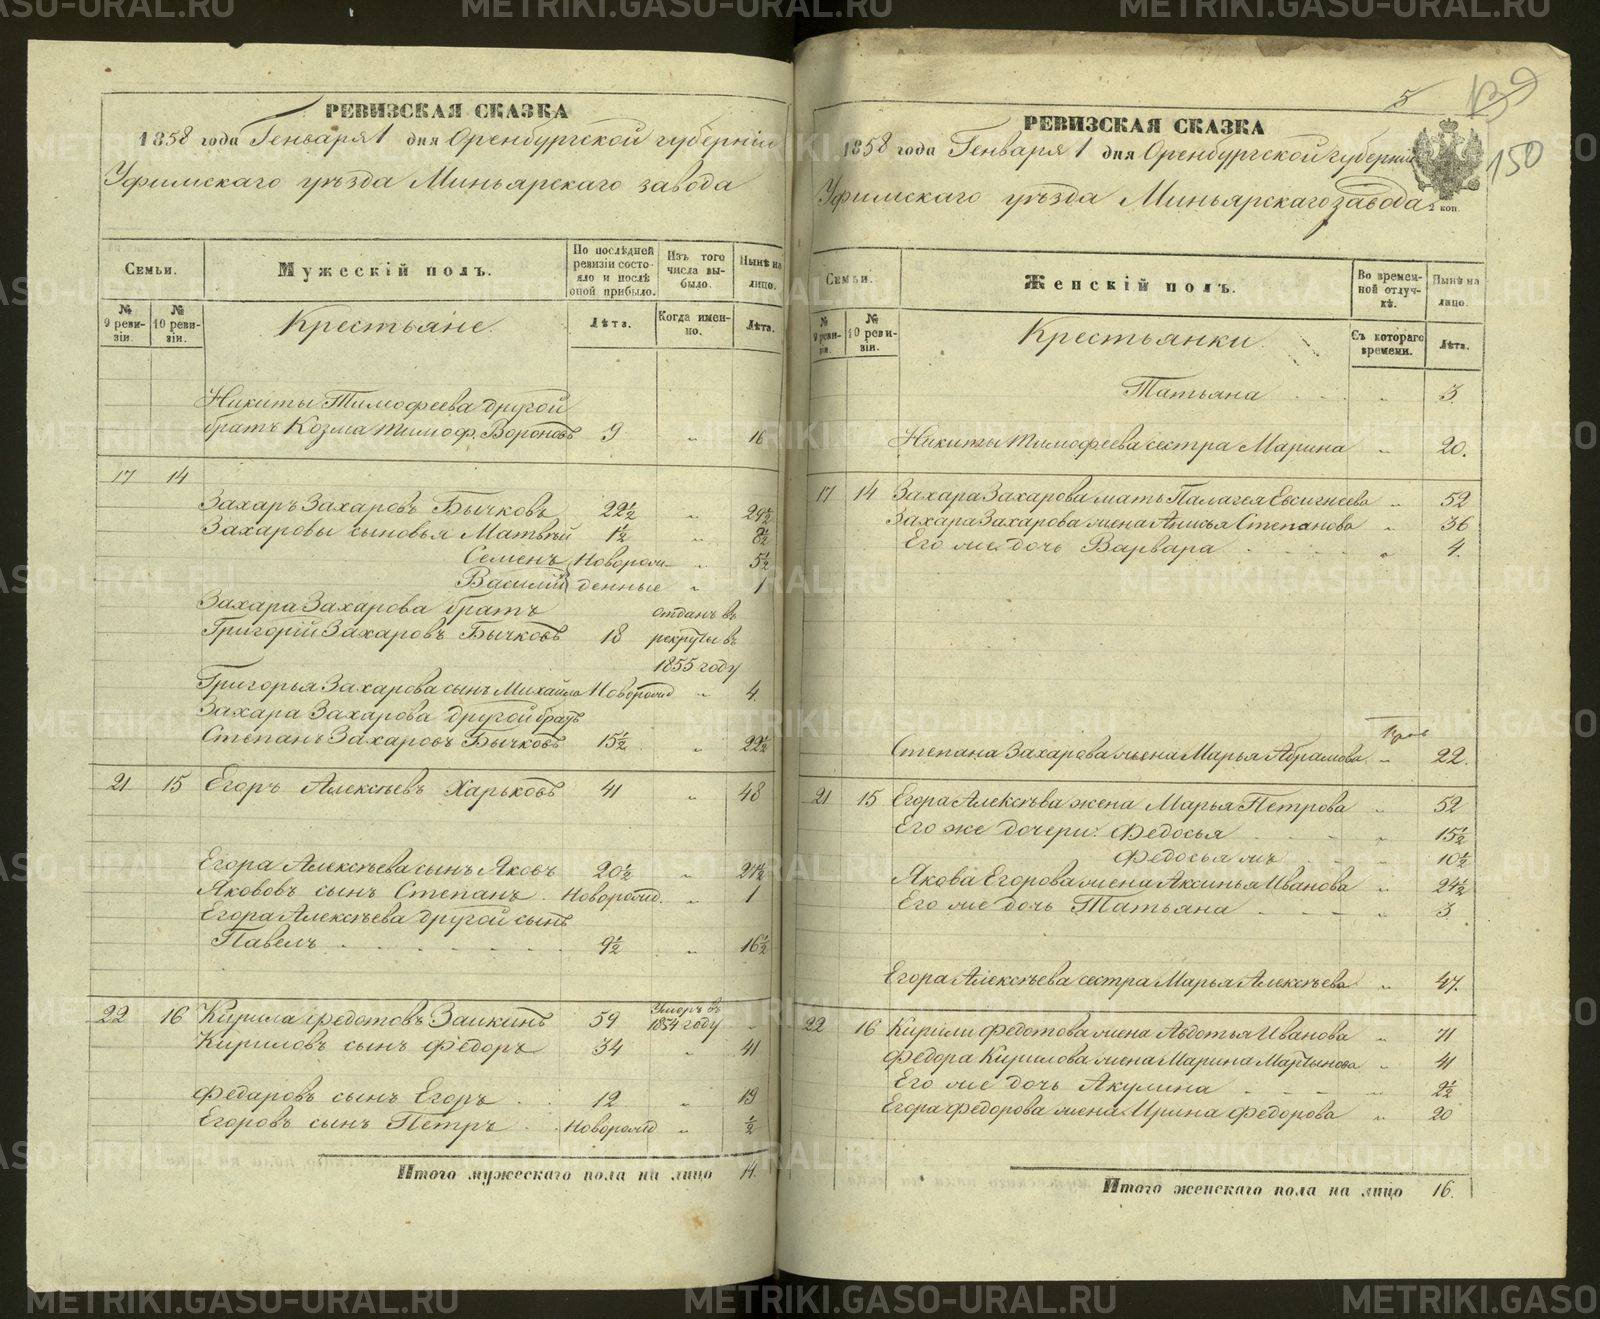 РЕВИЗСКАЯ СКАЗКА
1858 года Генваря 1 дня Оренбургской губерніи
Уфимскаго уѣзда Миньярскаго завода
Семьи.
Мужескій полъ.
По послѣдней ревизіи состояло и послѣ оной прибыло.
Изъ того числа выбыло.
Нынѣ на лицо.
№ 9 ревизіи.
№ 10 ревизіи.
Крестьяне.
Лѣта.
Когда именно.
Лѣта.
Никиты Тимофеева другой
братъ Козма Тимоф. Вороновъ 9 " 16
17 14
Захаръ Захаровъ Бычковъ 22½ " 29½
Захаровы сыновья Матвѣй 1½ " 8½
Семенъ Новорож- " 5½
Василій денные " 1
Захара Захарова братъ отданъ въ
Григорій Захаровъ Бычковъ 18 рекруты въ
1855 году
Григорья Захарова сынъ Михайло Новорожд " 4.
Захара Захарова другой братъ
Степанъ Захаровъ Бычковъ 15½ " 22½
21 15 Егоръ Алексѣевъ Харьковъ 41 " 48
Егора Алексѣева сынъ Яковъ 20½ " 27½
Яковъ сынъ Степанъ Новорожд. " 1
Егора Алексѣева другой сынъ
Павелъ 9½ " 16½
22 16 Кирила Федотовъ Заикинъ 59 Умеръ въ 1854 году -
Кириловъ сынъ Федоръ 34 " 41
Федаровъ сынъ Егоръ 12 " 19
Егоровъ сынъ Петръ Новорожд " ½
Итого мужескаго пола на лицо 14.
5
139
150
РЕВИЗСКАЯ СКАЗКА
1858 года Генваря 1 дня Оренбургской губерніи
Уфимскаго уѣзда Миньярскаго завода
2 коп.
Семьи.
Женскій полъ.
Во временной отлучкѣ.
Нынѣ на лицо.
№ 9 ревизіи.
№ 10 ревизіи.
Крестьянки.
Съ котораго времени.
Лѣта.
Татьяна " 3
Никиты Тимофеева сестра Марина " 20.
17 14 Захара Захарова мать Палагея Евсигнеева " 52
Захара Захарова жена Анисья Степанова " 36
Его же дочь Варвара " 4.
Степана Захарова жена Марья Абрамова " 22.
21 15 Егора Алексѣева жена Марья Петрова " 52
Его же дочери: Федосья " 15½
Федосья жъ 10½
Якова Егорова жена Аксинья Иванова " 24½
Его же дочь Татьяна " 3
Егора Алексѣева сестра Марья Алексѣева " 47.
22 16 Кирили Федотова жена Авдотья Иванова " 71
Федора Кирилова жена Марина Мартынова " 41
Его же дочь Акулина " 2½
Егора Федорова жена Ирина Федорова " 20
Итого женскаго пола на лицо 16.
METRIKI.GASO-URAL.RU